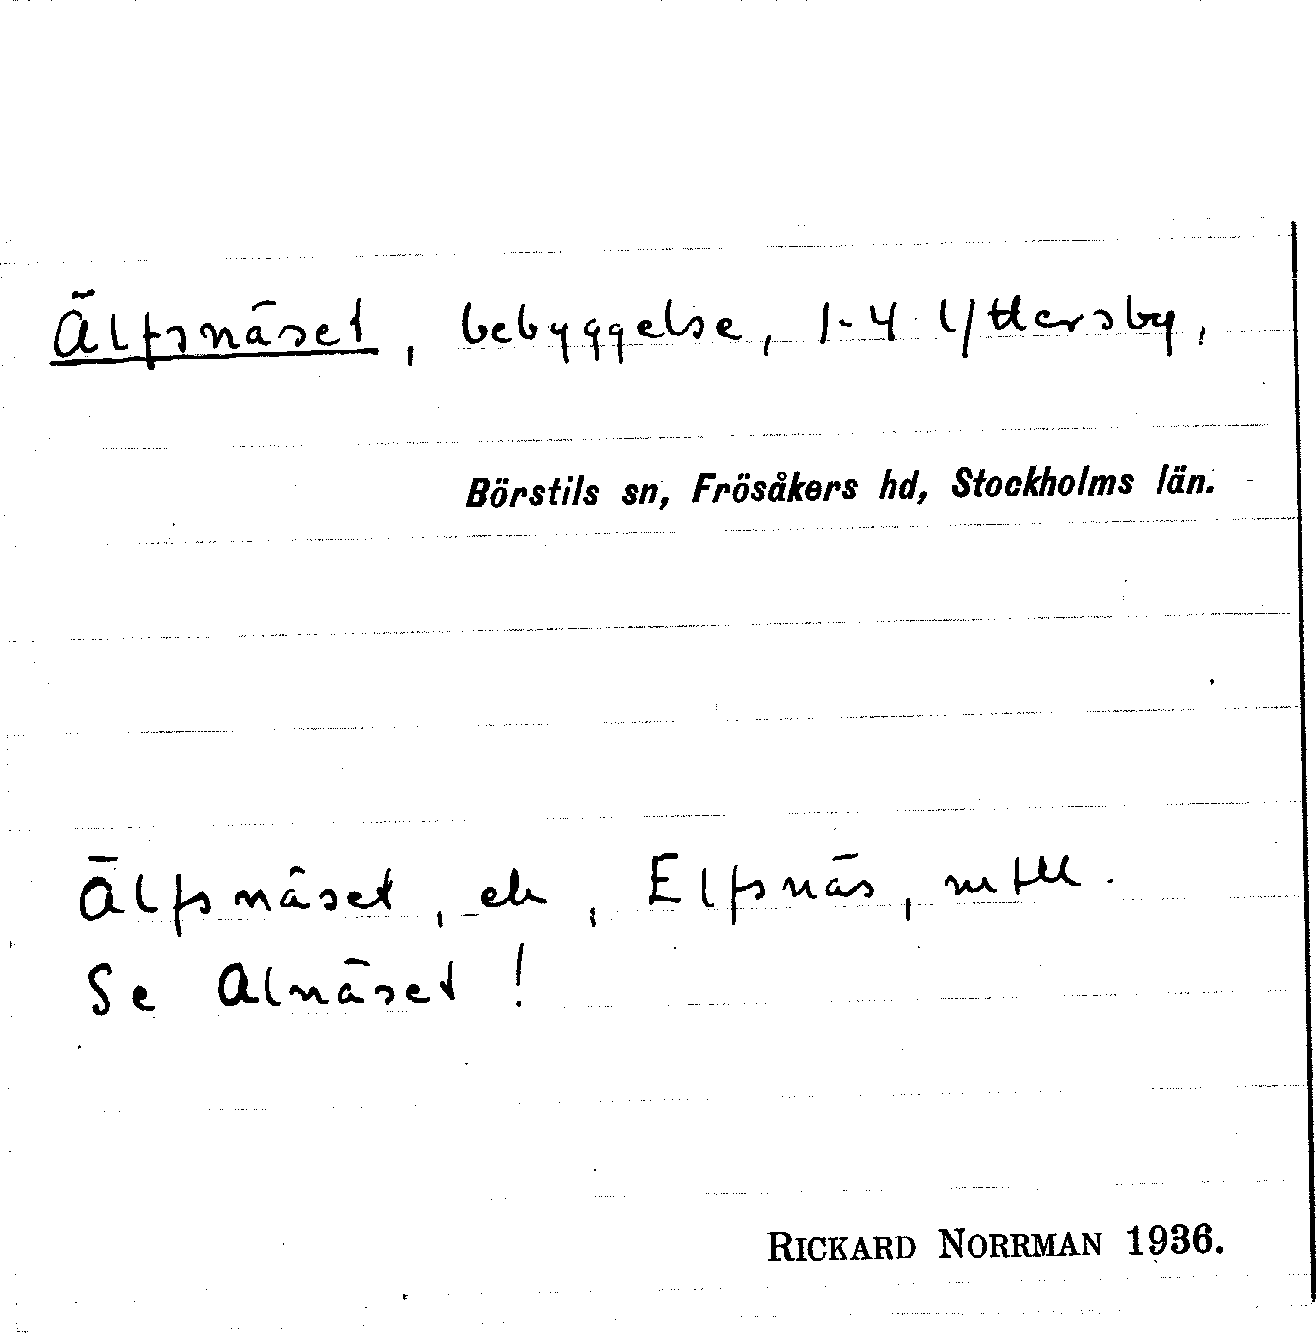 Älfsnäset, bebyggelse, 1-4 Yttersby,
Börstils sn, Frösåkers hd, Stockholms län.
Älfsnäset, ek, Elfsnäs, mtll.
Se Alnäset!
RICKARD NORRMAN 1936.